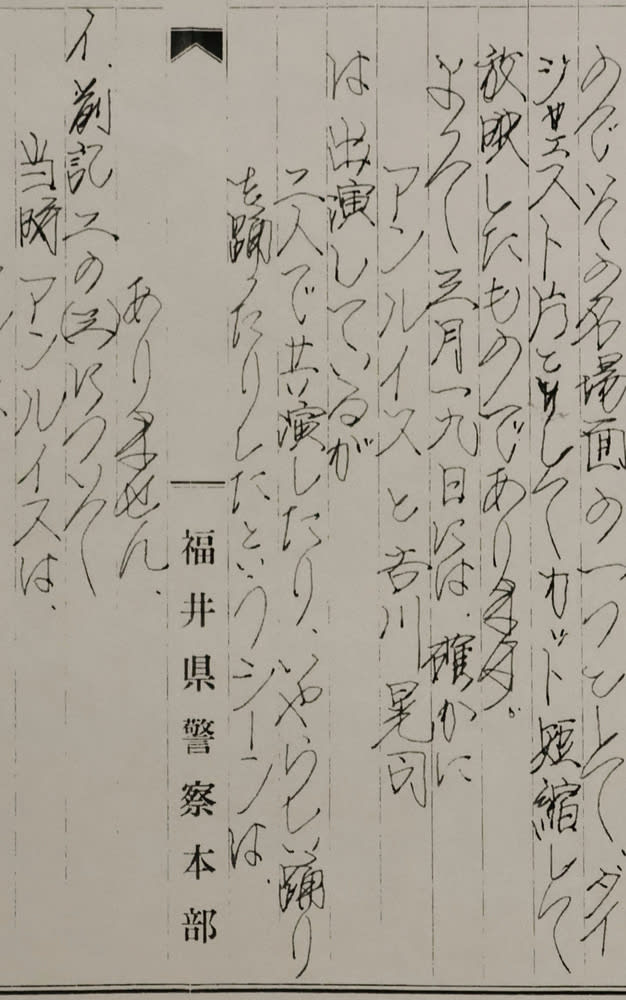 のでその名場面の一つとして、ダイ
ジェスト片としてカット短縮して
放映したものであります。
よって三月一九日には、確かに
アンルイスと吉川晃司
は出演しているが
二人で共演したり、いやらしい踊り
を踊ったりしたというシーンは、
福井県警察本部
ありません、
イ、前記二の(三)について
当時アンルイスは、